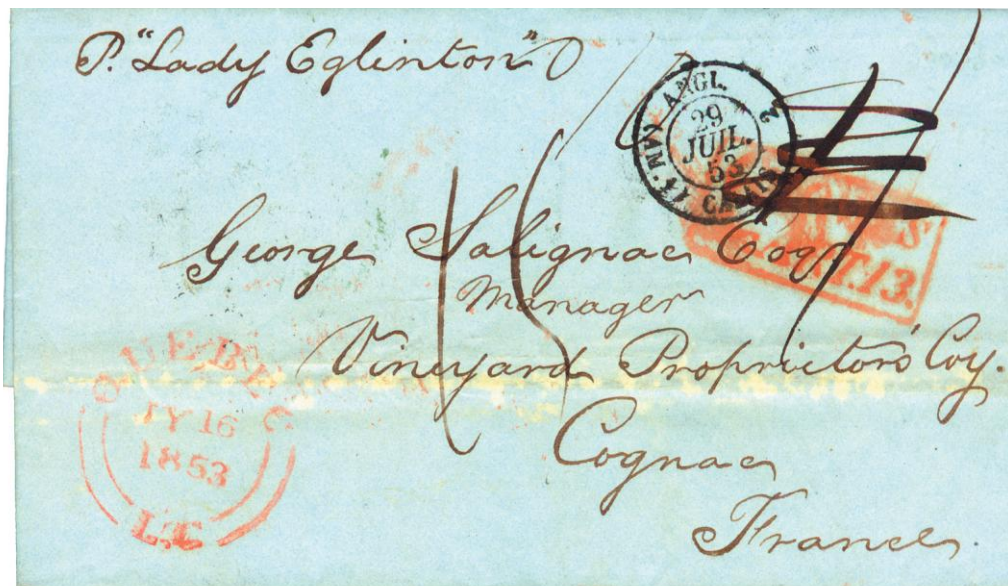 P. "Lady Eglinton"
ANGL. 2
29
JUIL.
53
CALAIS
George Salignac Esqr
Manager
Vineyard Proprietors Coy.
Cognac
France
ART. 13.
16
QUEBEC
JY 16
1853
L.C